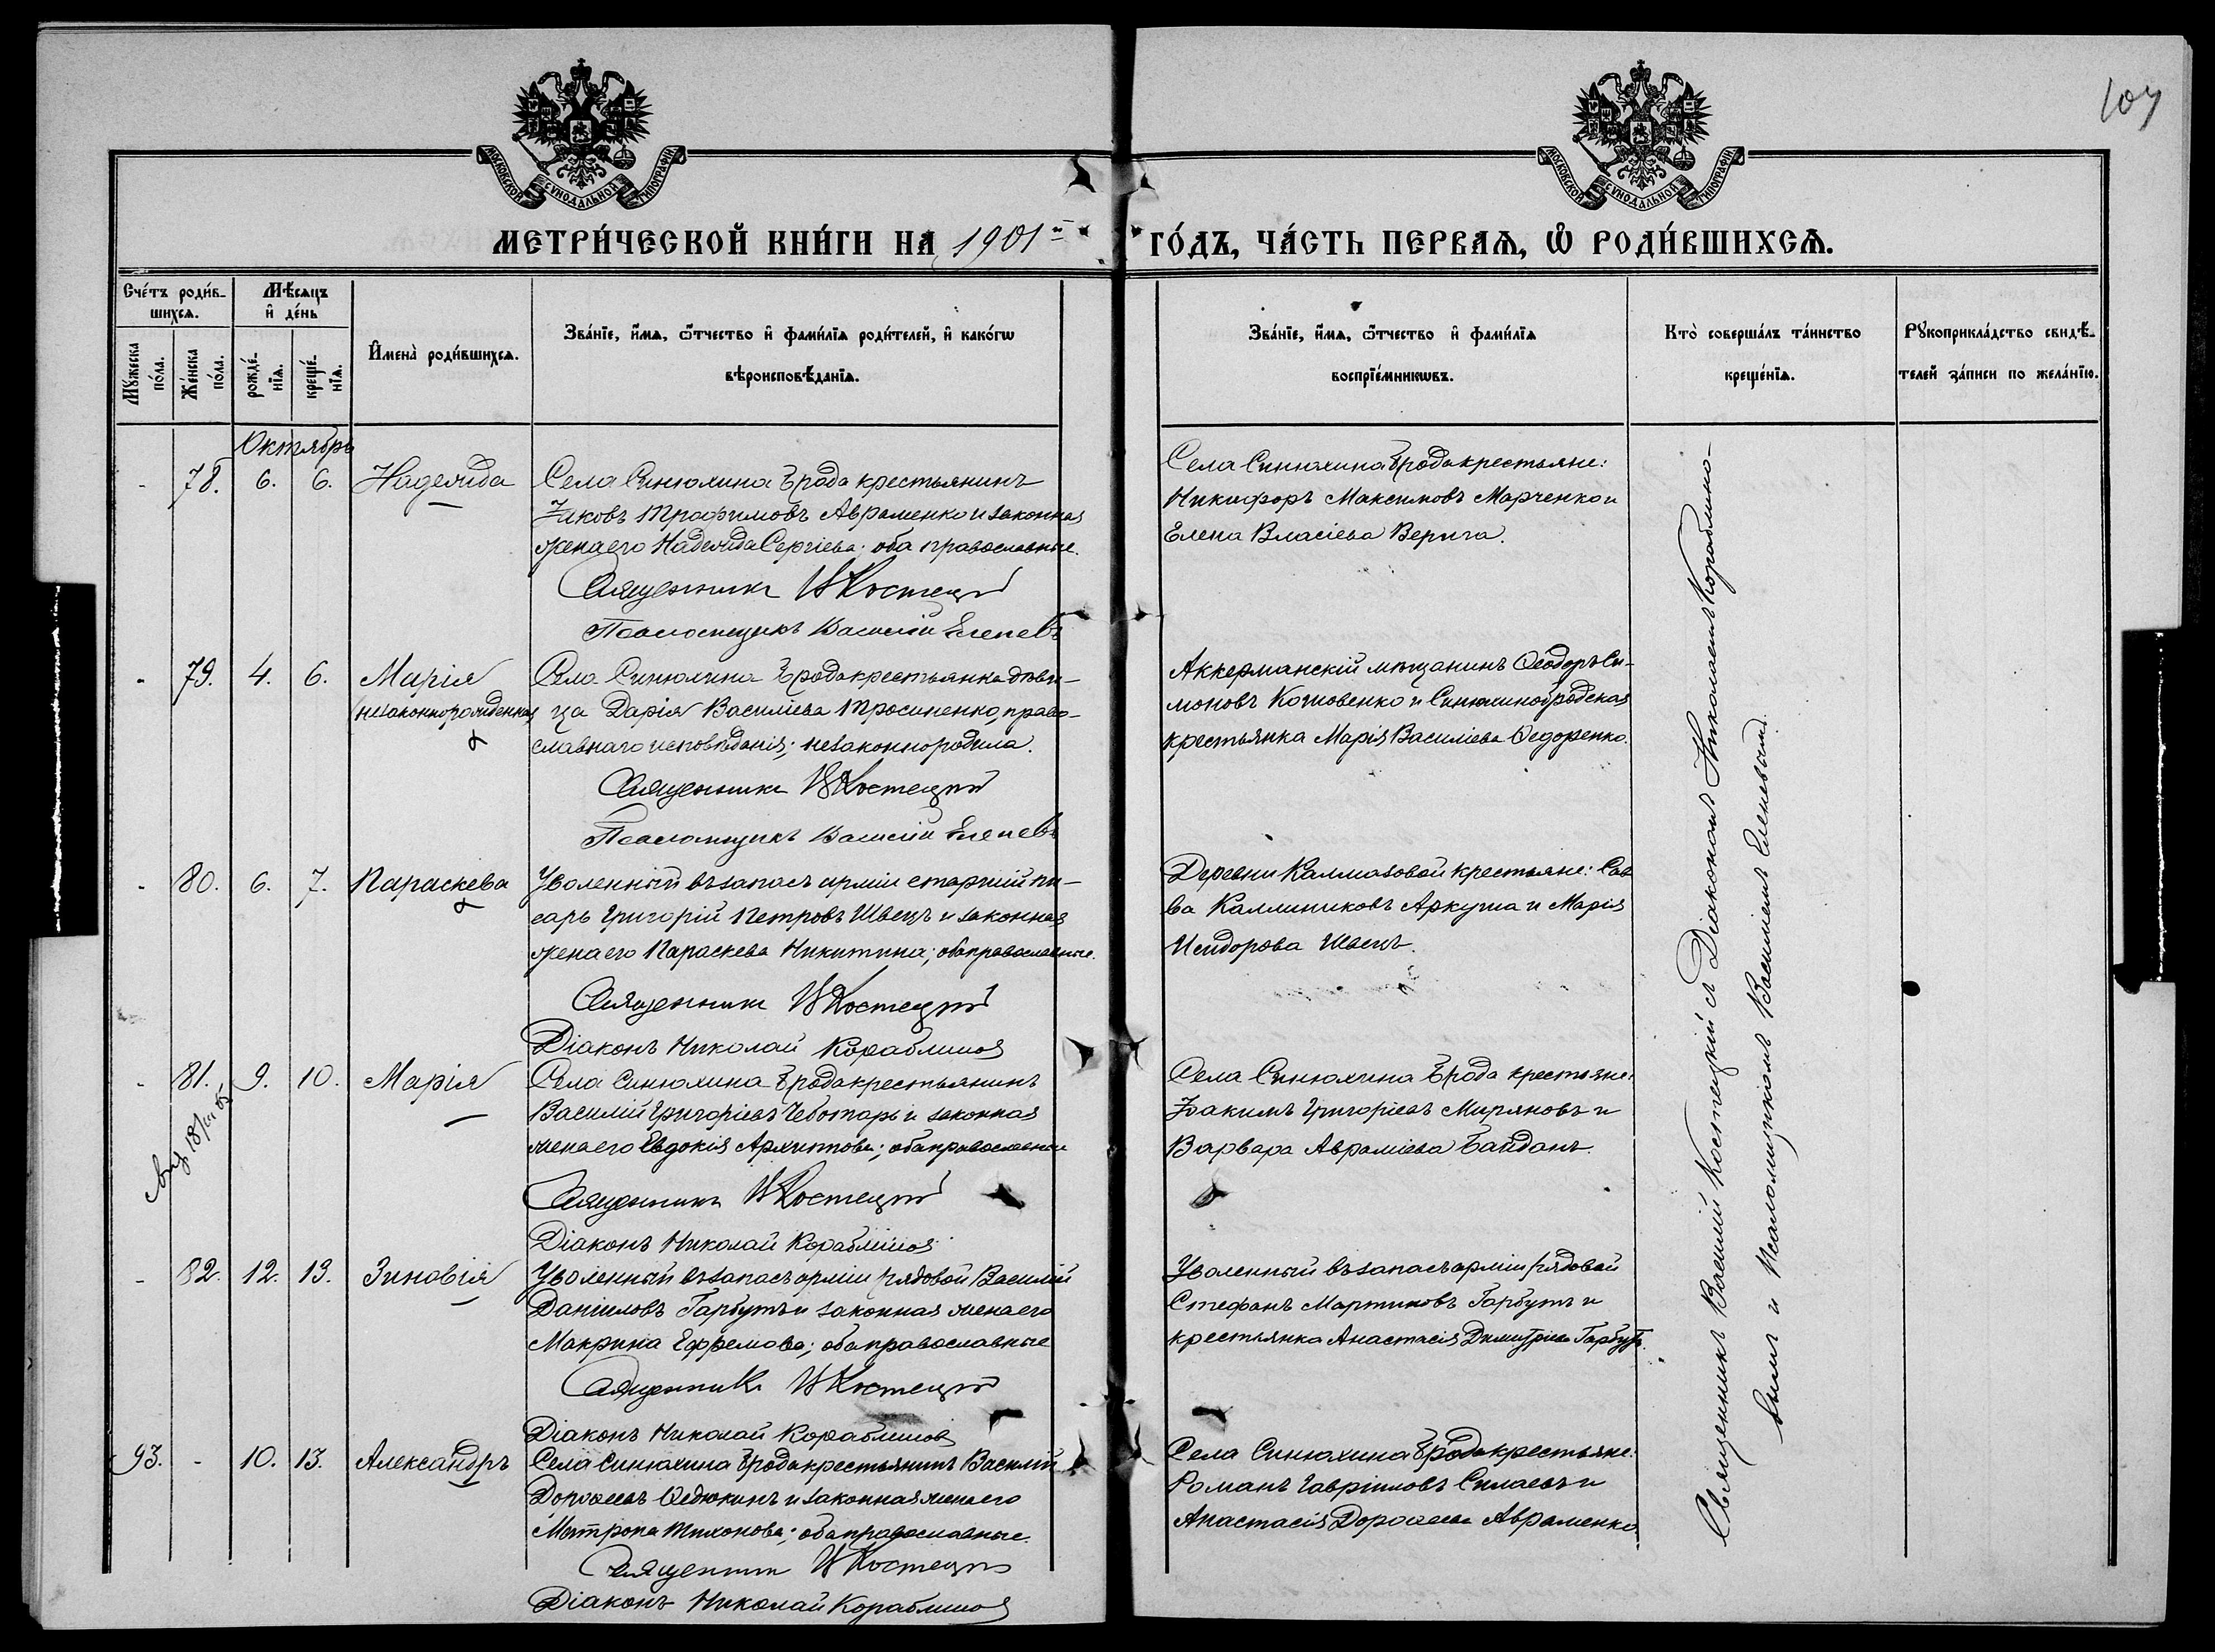 107
МОСКОВСКОЙ СѴНОДАЛЬНОЙ ТИПОГРАФІИ
МОСКОВСКОЙ СѴНОДАЛЬНОЙ ТИПОГРАФІИ
МЕТРИ́ЧЕСКОЙ КНИ́ГИ НА 1901й ГО́ДЪ, ЧА́СТЬ ПЕРВАѦ, Ѡ҆ РОДИ́ВШИХСѦ.
Сче́тъ роди́в-
шихсѧ.
Мѣ́сѧцъ
и҆ де́нь
Мꙋ́жеска
по́ла.
Же́нска
по́ла.
рожде́-
нїѧ.
креще́-
нїѧ.
И҆мена̀ роди́вшихсѧ.
Зва́нїе, и҆́мѧ, ѻ҆́тчество и҆ фами́лїѧ роди́телей, и҆ како́гѡ
вѣроисповѣ́данїѧ.
Зва́нїе, и҆́мѧ, ѻ҆́тчество и҆ фами́лїѧ
воспрїе́мникѡвъ.
Кто̀ соверша́лъ та́инство
креще́нїѧ.
Рꙋкоприкла́дство свидѣ́-
телей за́писи по жела́нїю.
Октябрь
- 78. 6. 6. Надежда
Села Синюхина Брода крестьянинъ
Іаковъ Трофимовъ Авраменко и законная
жена его Надежда Сергіева; оба православные.
Священникъ В Костецкій
Псаломщикъ Василій Еленевъ
Села Синюхина Брода крестьяне:
Никифоръ Максимовъ Марченко и
Елена Власіева Верига.
- 79. 4. 6. Марія
незаконнорожденная
Села Синюхина Брода крестьянка дѣви-
ца Дарія Василіева Тросиненко, право-
славнаго исповѣданія; незаконно родила.
Священникъ В Костецкій
Псаломщикъ Василій Еленевъ
Аккерманскій мѣщанинъ Ѳеодоръ Си-
моновъ Котовенко и Синюхинобродская
крестьянка Марія Василіева Ѳедоренко.
- 80. 6. 7. Параскева
Уволенный въ запасъ арміи старшій пи-
сарь Григорій Петровъ Швецъ и законная
жена его Параскева Никитина; оба православные.
Священникъ В Костецкій
Діаконъ Николай Кораблиновъ
Деревни Калмазовой крестьяне: Сав-
ва Каллиниковъ Аркуша и Марія
Исидорова Швецъ.
- 81. 9. 10. Марія
Села Синюхина Брода крестьянинъ
Василій Григоріевъ Чеботарь и законная
жена его Евдокія Архиппова; оба православные
Священникъ В Костецкій
Діаконъ Николай Кораблиновъ
Села Синюхина Брода крестьяне:
Іоакимъ Григоріевъ Миряновъ и
Варвара Авраміева Байданъ.
- 82. 12. 13. Зиновія
Уволенный въ запасъ арміи рядовой Василій
Даніиловъ Гарбузъ и законная жена его
Макрина Ефремова; оба православные
Священникъ В Костецкій
Діаконъ Николай Кораблиновъ
Уволенный въ запасъ арміи рядовой
Стефанъ Мартиновъ Гарбузъ и
крестьянка Анастасія Димитріева Гарбузъ.
93. - 10. 13. Александръ
Села Синюхина Брода крестьянинъ Василій
Дороѳеевъ Ѳедюкинъ и законная жена его
Матрона Тихонова; оба православные.
Священникъ В Костецкій
Діаконъ Николай Кораблиновъ
Села Синюхина Брода крестьяне:
Романъ Гавріиловъ Силаевъ и
Анастасія Дороѳеева Авраменко
Священникъ Василій Костецкій съ Діакономъ Николаемъ Кораблино-
вымъ и Псаломщикомъ Василіемъ Еленевымъ.